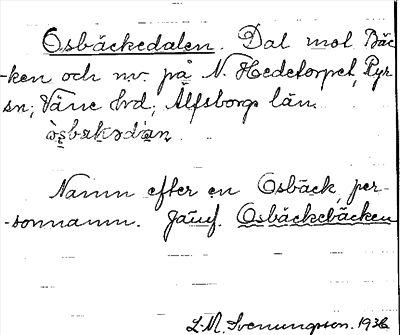 Osbäckedalen. Dal mot Bäc-
-ken och nv. på N. Hedetorpet, Ryr
sn; Väne hrd; Älfsborgs län.
Namn efter en Osbäck, per-
-sonnamn. Jämf. Osbäckebäcken
L.M. Svenungsson. 1936